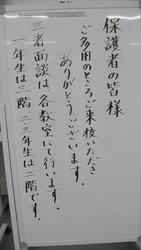 保護者の皆様
ご多用のところご来校いただき
ありがとうございます。
三者面談は、各教室にて行います。
一年生は三階、二・三年生は二階です。